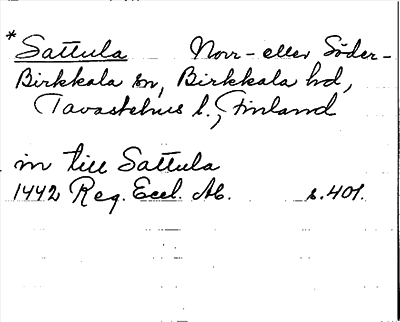 * Sattula Norr- eller Söder-
Birkkala sn, Birkkala hd,
Tavastehus l., Finland
in till Sattula
1442 Reg. Eccl. Ab. s. 401.